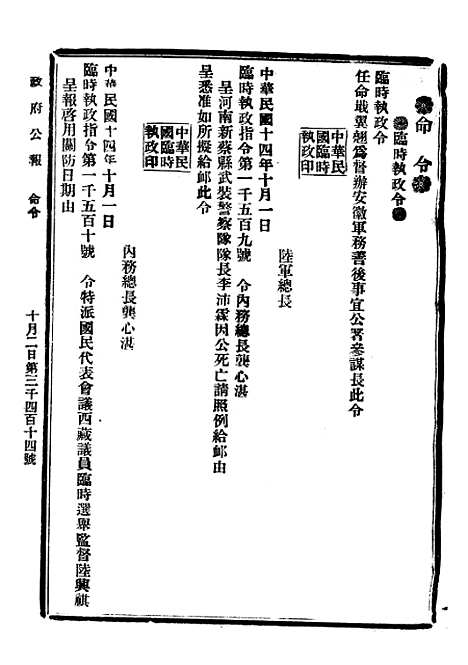 命令
臨時執政令
臨時執政令
任命戢翼翹爲督辦安徽軍務善後事宜公署參謀長此令
中華民
國臨時
執政印
陸軍總長
中華民國十四年十月一日
臨時執政指令第一千五百九號 令內務總長龔心湛
呈河南新蔡縣武裝警察隊隊長李沛霖因公死亡請照例給卹由
呈悉准如所擬給卹此令
中華民
國臨時
執政印
內務總長龔心湛
中華民國十四年十月一日
臨時執政指令第一千五百十號 令特派國民代表會議西藏議員臨時選舉監督陸興祺
呈報啓用關防日期由
政府公報 命令 十月二日第三千四百十四號